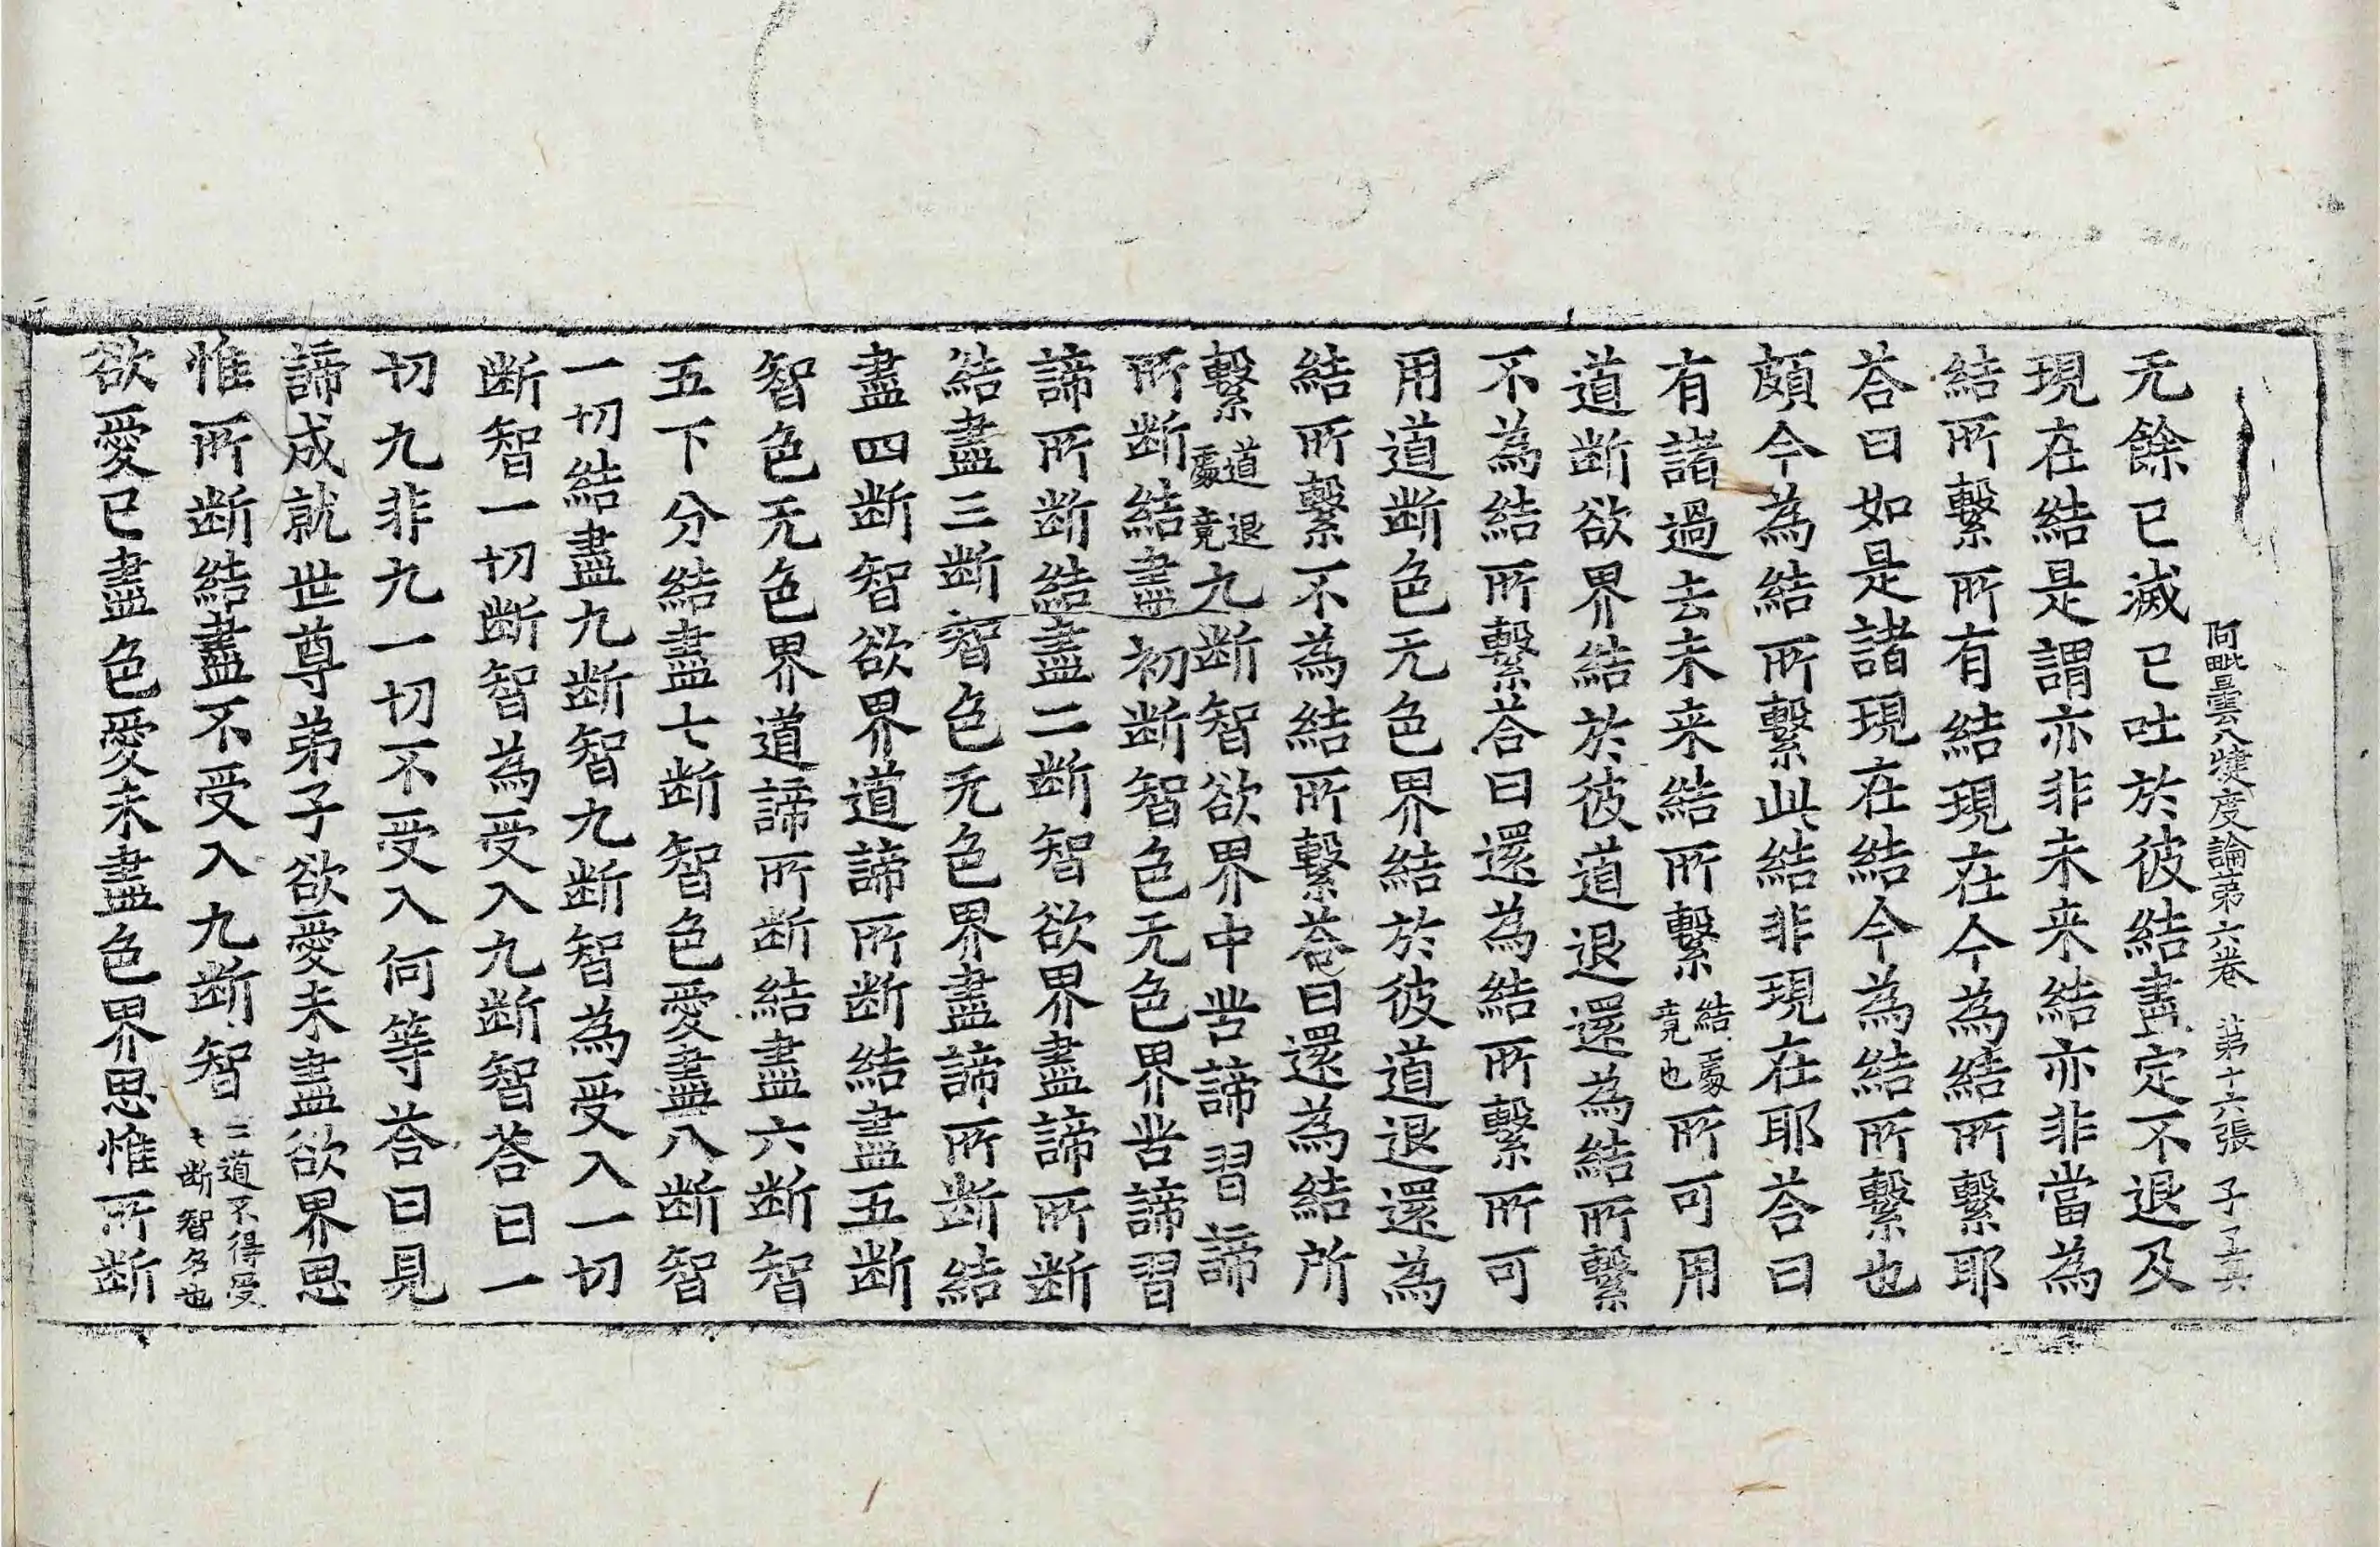 阿毗曇八犍度論第六卷 第十六張 子
无餘已滅已吐於彼結盡定不退及
現在結是謂亦非未来結亦非當為
結所繫所有結現在今為結所繫耶
荅曰如是諸現在結今為結所繫也
頗今為結所繫此結非現在耶荅曰
有諸過去未来結所繫結處竟也所可用
道断欲界結於彼道退還為結所繫
不為結所繫荅曰還為結所繫所可
用道断色无色界結於彼道退還為
結所繫不為結所繫荅曰還為結所
繫道退處竟九断智欲界中苦諦習諦
所断結盡初断智色无色界苦諦習
諦所断結盡二断智欲界盡諦所断
結盡三断智色无色界盡諦所断結
盡四断智欲界道諦所断結盡五断
智色无色界道諦所断結盡六断智
五下分結盡七断智色愛盡八断智
一切結盡九断智九断智為受入一切
断智一切断智為受入九断智荅曰一
切九非九一切不受入何等荅曰見
諦成就世尊弟子欲愛未盡欲界思
惟所断結盡不受入九断智二道不得受七断智名也
欲愛已盡色愛未盡色界思惟所断